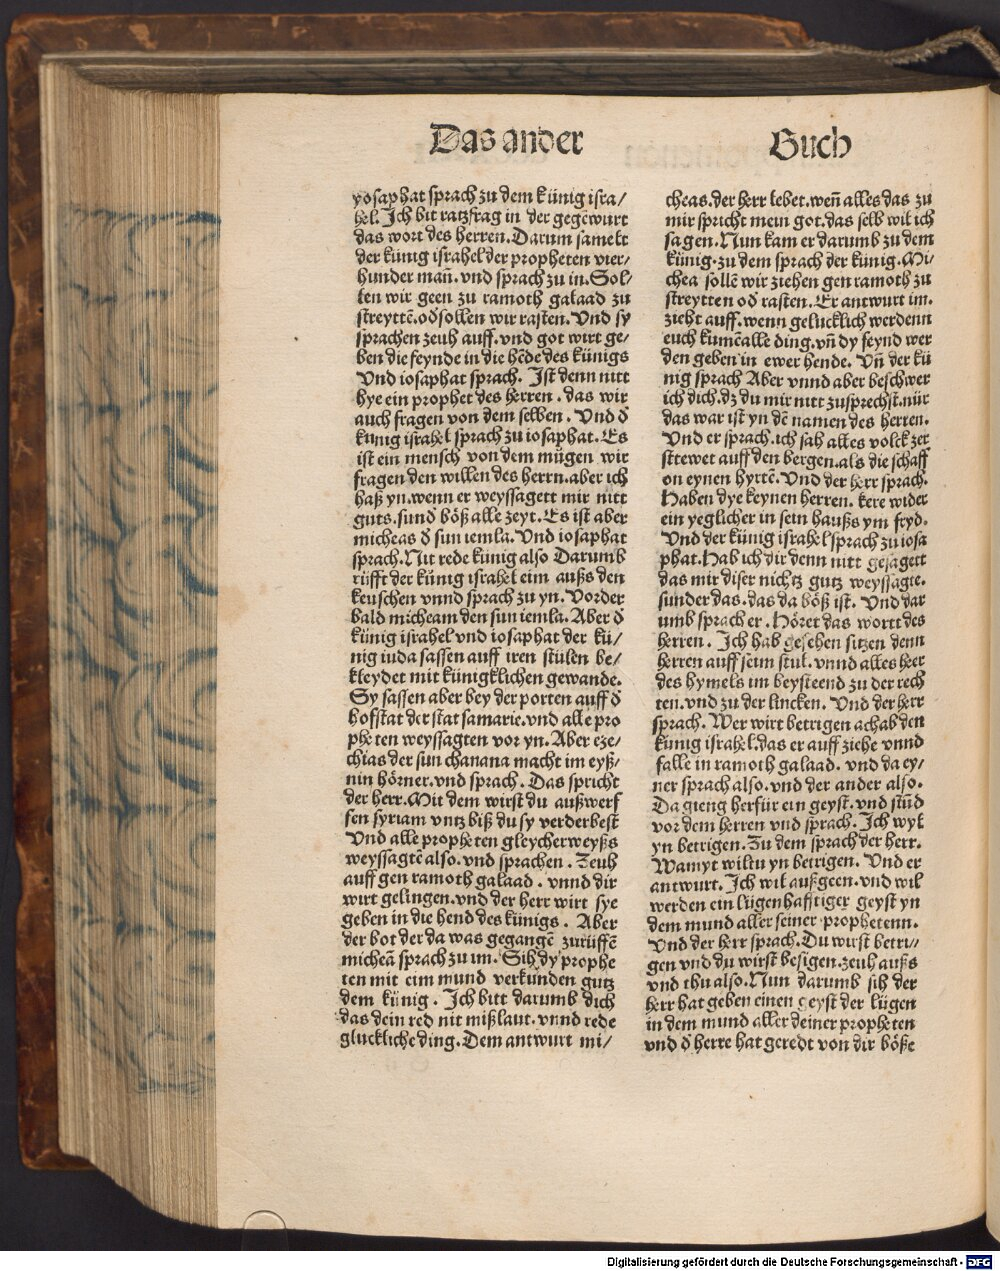 Das ander
Buch
yosaphat sprach zu dem künig isra/
hel. Ich bit ratzfrag in der gegēwurt
das wort des herren. Darum samelt
der künig israhel der propheten vier/
hunder mañ. vnd sprach zu in. Sol/
len wir geen zu ramoth galaad zu
streyttē. od̄ sollen wir rasten. Vnd sy
sprachen zeuh auff. vnd got wirt ge/
ben die feynde in die hēde des künigs
Vnd iosaphat sprach. Ist denn nitt
hye ein prophet des herren. das wir
auch fragen von dem selben. Vnd d̄
künig israhel sprach zu iosaphat. Es
ist ein mensch von dem mügen wir
fragen den willen des herrn. aber ich
haß yn. wenn er weyssagett mir nitt
guts. sund̄ böß alle zeyt. Es ist aber
micheas d̄ sun iemla. Vnd iosaphat
sprach. Nit rede künig also Darumb
rüfft der künig israhel eim außs den
keuschen vnnd sprach zu yn. Vorder
bald micheam den sun iemla. Aber d̄
künig israhel vnd iosaphat der kü/
nig iuda sassen auff iren stülen be/
kleydet mit künigklichen gewande.
Sy sassen aber bey der porten auff d̄
hofstat der stat samarie. vnd alle pro
pheten weyssagten vor yn. Aber eze/
chias der sun chanana macht im eyß/
nin hörner. vnd sprach. Das spricht
der herr. Mit dem wirst du außwerf
fen syriam vntz biß du sy verderbest
Vnd alle propheten gleycherweyßs
weyssagtē also. vnd sprachen. Zeuh
auff gen ramoth galaad. vnnd dir
wirt gelingen. vnd der herr wirt sye
geben in die hend des künigs. Aber
der bot der da was gegangē zurüffē
micheā sprach zu im. Sih dy prophe
ten mit eim mund verkünden gutz
dem künig. Ich bitt darumb dich
das dein red nit mißlaut. vnnd rede
glückliche ding. Dem antwurt mi/
cheas. der herr lebet. weñ alles das zu
mir spricht mein got. das selb wil ich
sagen. Nun kam er darumb zu dem
künig. zu dem sprach der künig. Mi/
chea sollē wir ziehen gen ramoth zu
streytten od̄ rasten. Er antwurt im.
zieht auff. wenn gelücklich werdenn
euch kumē alle ding. vñ dy feynd wer
den geben in ewer hende. Vñ der kü
nig sprach Aber vnnd aber beschwer
ich dich. dz du mir nitt zusprechst. nür
das war ist yn dē namen des herren.
Vnd er sprach. ich sah alles volck zer
sttewet auff den bergen. als die schaff
on eynen hyrtē. Vnd der herr sprach.
Haben dye keynen herren. kere wider
ein yeglicher in sein haußs ym fryd.
Vnd der künig israhel sprach zu iosa
phat. Hab ich dir denn nitt gesagett
das mir diser nichtz gutz weyssagte.
sunder das. das da böß ist. Vnd dar
umb sprach er. Höret das wortt des
herren. Ich hab gesehen sitzen denn
herren auff seim stul. vnnd alles heer
des hymels im beysteend zu der rech
ten. vnd zu der lincken. Vnd der herr
sprach. Wer wirt betrigen achab den
künig israhel. das er auff ziehe vnnd
falle in ramoth galaad. vnd da ey/
ner sprach also. vnd der ander also.
Da gieng herfür ein geyst. vnd stūd
vor dem herren vnd sprach. Ich wyl
yn betrigen. Zu dem sprach der herr.
Wamyt wiltu yn betrigen. Vnd er
antwurt. Ich wil außgeen. vnd wil
werden ein lügenhafftiger geyst yn
dem mund aller seiner prophetenn.
Vnd der herr sprach. Du wirst betri/
gen vnd du wirst besigen. zeuh außs
vnd thu also. Nun darumb sih der
herr hat geben einen geyst der lügen
in dem mund aller deiner propheten
vnd d̄ herre hat geredt von dir böße
Digitalisierung gefördert durch die Deutsche Forschungsgemeinschaft - DFG